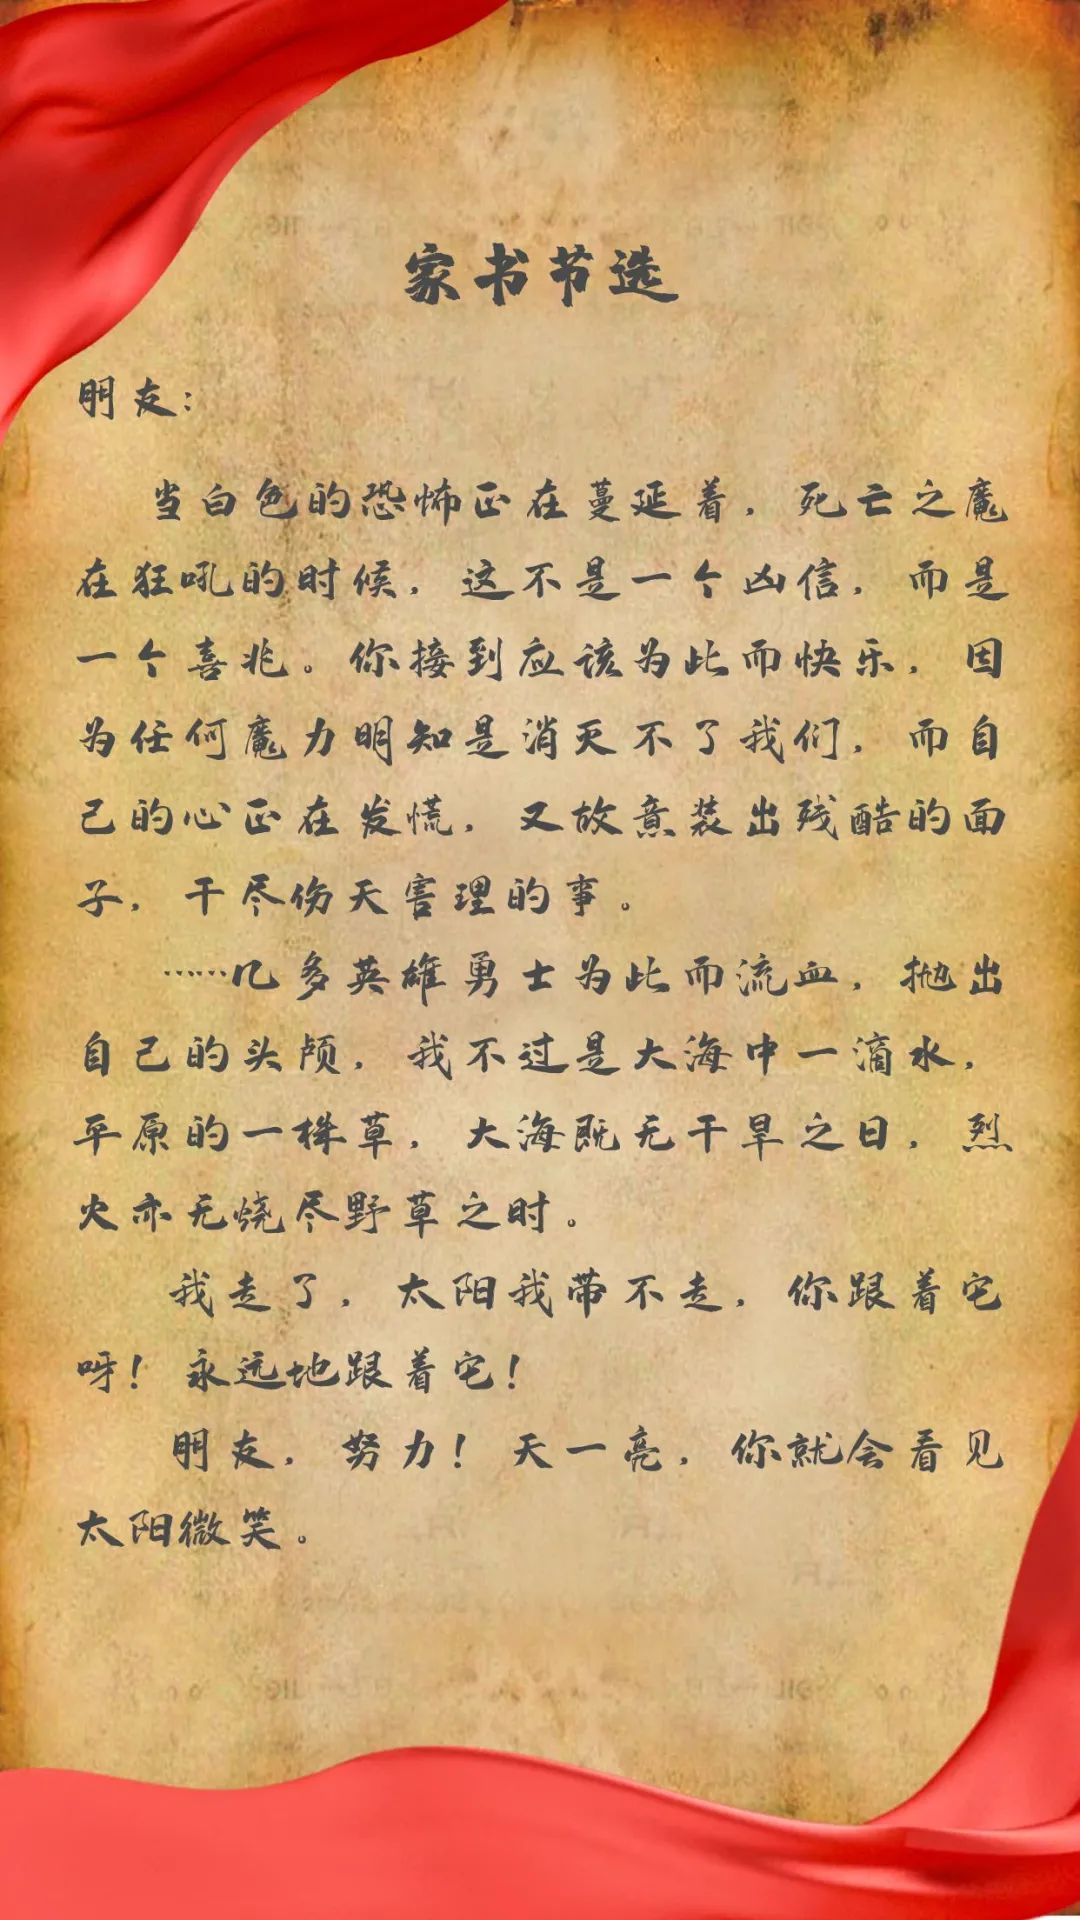 家书节选
朋友:
当白色的恐怖正在蔓延着,死亡之魔
在狂吼的时候,这不是一个凶信,而是
一个喜兆。你接到应该为此而快乐,因
为任何魔力明知是消灭不了我们,而自
己的心正在发慌,又故意装出残酷的面
子,干尽伤天害理的事。
……几多英雄勇士为此而流血,抛出
自己的头颅,我不过是大海中一滴水,
平原的一株草,大海既无干旱之日,烈
火亦无烧尽野草之时。
我走了,太阳我带不走,你跟着它
呀!永远地跟着它!
朋友,努力!天一亮,你就会看见
太阳微笑。